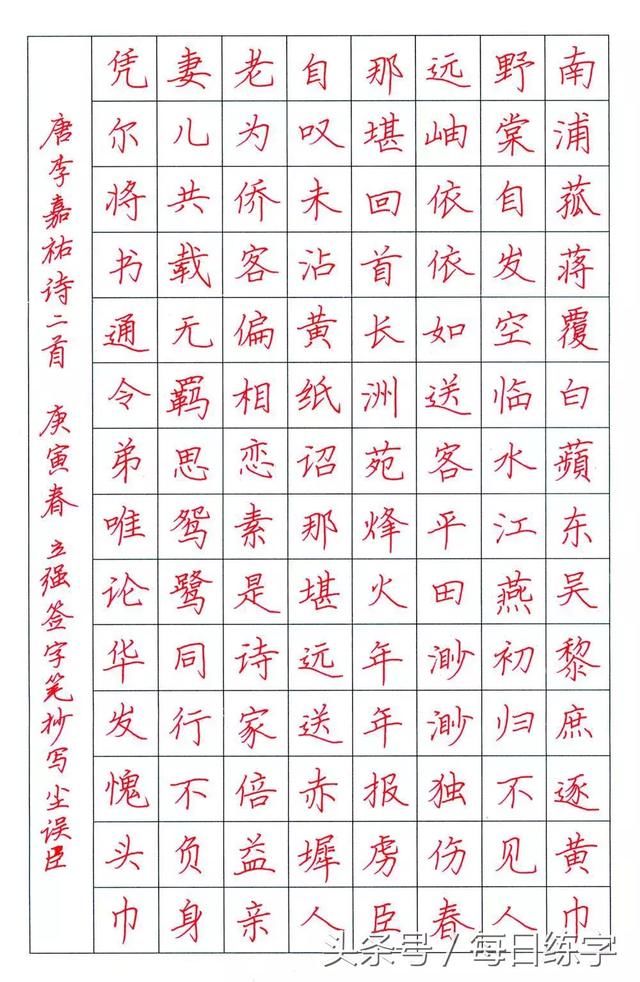 南浦菰蒋覆白蘋东吴黎庶逐黄巾
野棠自发空临水江燕初归不见人
远岫依依如送客平田渺渺独伤春
那堪回首长洲苑烽火年年报虏臣
自叹未沾黄纸诏那堪远送赤墀人
老为侨客偏相恋素是诗家倍益亲
妻儿共载无羁思鸳鹭同行不负身
凭尔将书通令弟唯论华发愧头巾
唐李嘉祐诗二首 庚寅春立强签字笔抄写尘误臣
头条号 / 每日练字